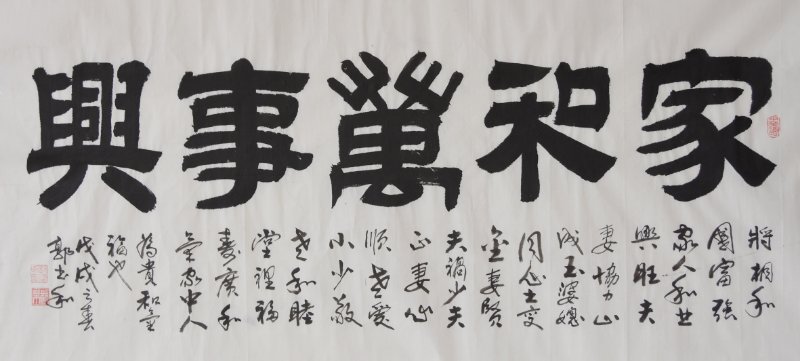 家和萬事興
將相和
國富強
家人和业
興旺夫
妻協力山
成玉婆媳
同心土变
金妻賢
夫禍少夫
正妻心
順老愛
小少敬
老和睦
堂裡福
壽廣和
氣家中人
為貴和氣
福也
戊戌之春
郭和